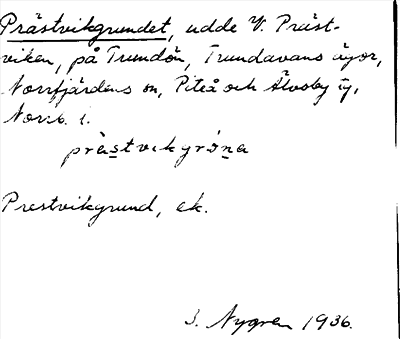 Prästvikgrundet, udde V. Präst-
viken, på Trundön, Trundavans ägor,
Norrfjärdens sn, Piteå och Älvsby tg,
Norrb. l.
prästvikgröna
Prestvikgrund, ek.
S. Nygren 1936.